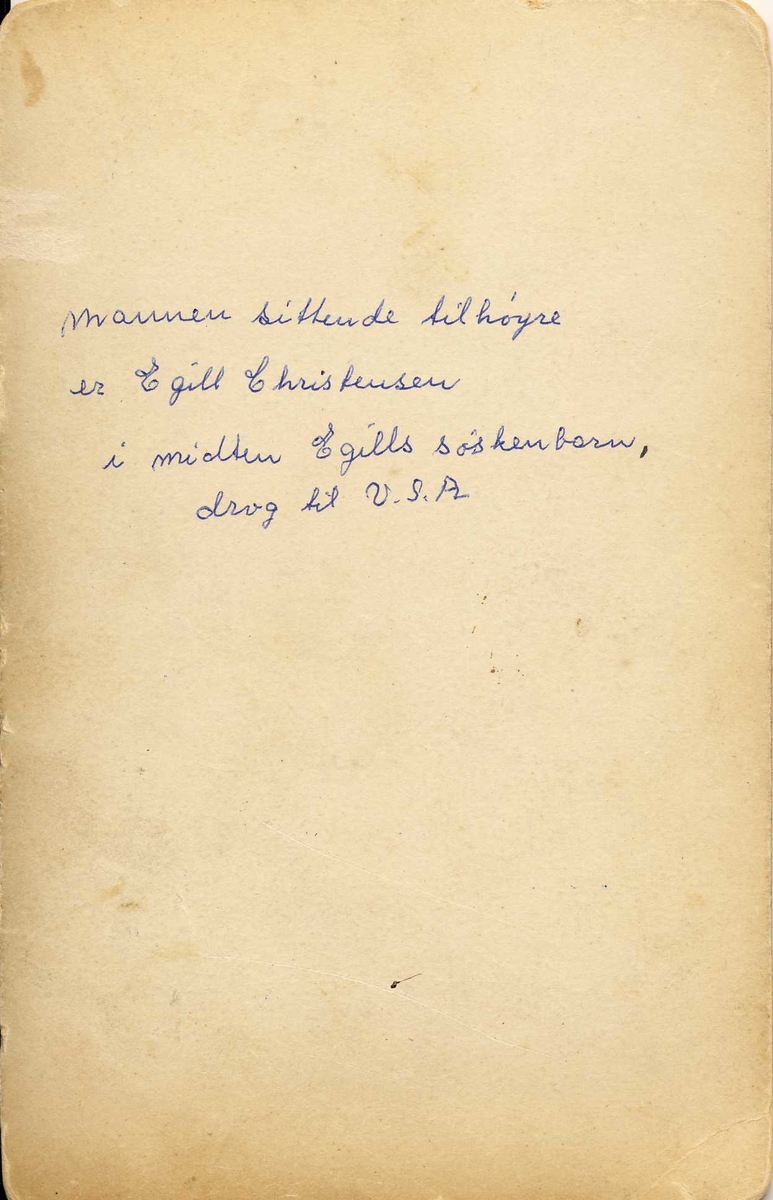 Mannen sittende tilhóyre
er Egill Christensen
i midten Egills sóskenbarn,
drog til U.S.A